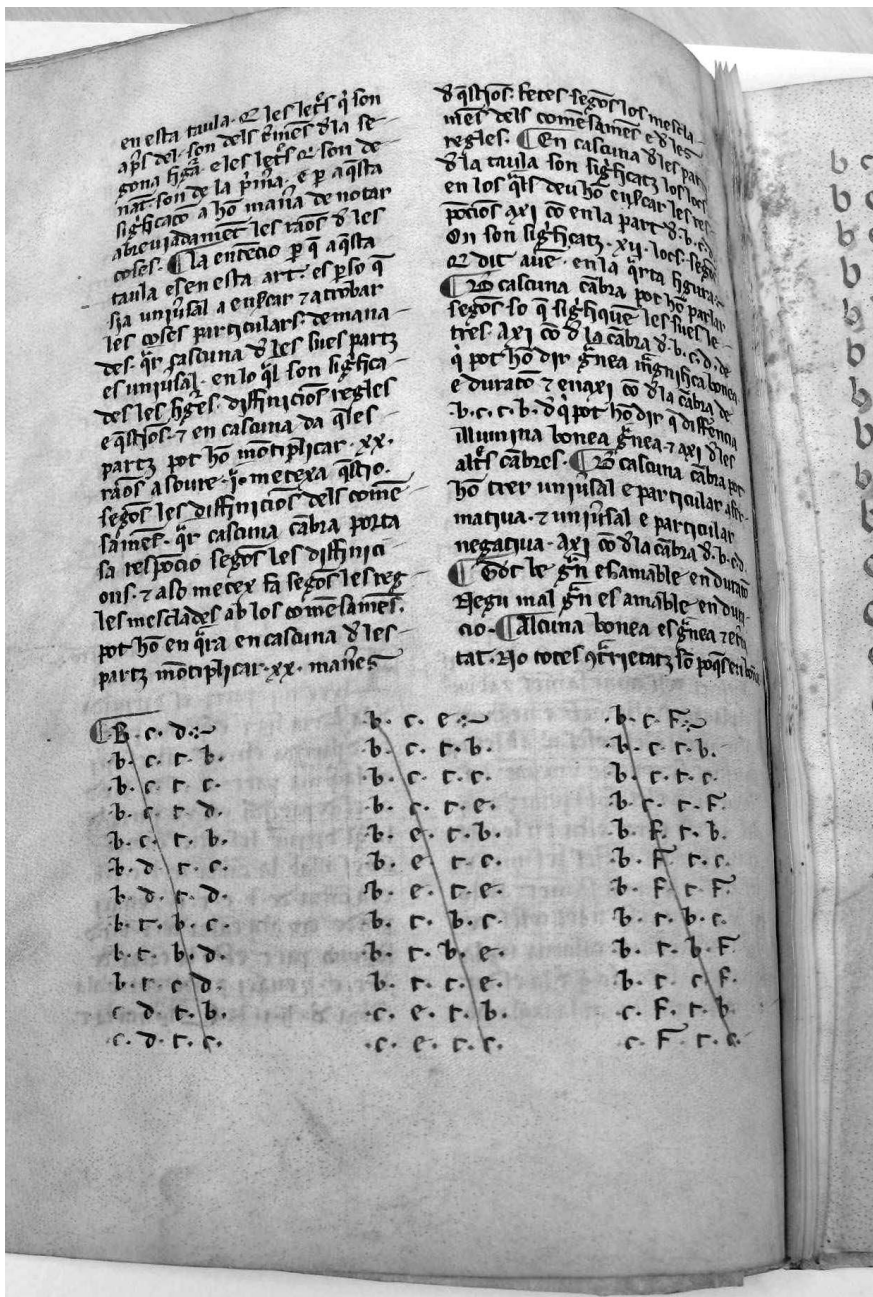 en esta taula. Et les letrs q̄ son
aprs del. son dels cōmēs d̄la se
gona figā. e les letrs Et. son de
nāt. son de la p̄m̄a. e p aq̄sta
siḡficaco a hō man̄a de notar
abreviadamēt les raōs d̄ les
coses. La entēcio p q̄ aq̄sta
taula es en esta art. es pso q̄
sia univ̄sal a encēar ⁊ atrobar
les coses particulars demana
des. q̄r cascuna d̄ les sues partz
es univ̄sal. en lo q̄l son siḡfica
des les fiḡes. diffiniciōs regles
e q̄stiōs. ⁊ en cascuna da q̄les
partz pot hō mōtip̄licar .xx.
raōs a soure .jᵃ. metexa q̄stio.
segōs les diffiniciōs dels comē
samēs. q̄r cascuna cābra porta
sa respōcio segōs les diffinici
ons. ⁊ aso metex fa segōs les reg
les mesclades ab los comēsamēs.
pot hō en q̄ra en cascuna d̄ les
partz mōtip̄licar .xx. man̄es
d̄ q̄stiōs. fetes segōs los mescla
mēs dels comēsamēs e d̄ les
regles. En cascuna d̄ les partz
d̄ la taula son siḡficatz los locs
en los q̄ls deu hō encēar les res
pōcios axi cō en la part d̄ .b.c.d.
On son siḡficatz .xij. locs. segōs
Et dit avē. en la q̄rta figura.
De cascuna cābra pot hō parlar
segōs so q̄ siḡfiquē les sues le
tres. Axi cō d̄ la cābra d̄ .b.c.d. de
q̄ pot hō dir ḡnea māgnifica bonea
e durato ⁊ enaxi cō d̄ la cābra de
.b.c.t.b. d̄ q̄ pot hō dir q̄ diff̄encia
illumina bonea ḡnea. ⁊ axi d̄ les
altrs cābres. De cascuna cābra pot
hō trer univ̄sal e particular afir
mativa. ⁊ univ̄sal e particular
negativa. Axi cō d̄ la cābra d̄ .b.c.d.
Tot be ḡn es amable en durato
Negu mal ḡn es amable en dura
cio. Alcuna bonea es ḡnea ⁊ et̄ni
tat. No totes 9t̄rietatz sō poq̄s en bōa
B. c. d.
b. c. t. b.
b. c. t. c.
b. c. t. d.
b. c. t. b.
b. d. t. c.
b. d. t. d.
b. t. b. c.
b. t. b. d.
b. t. c. d.
c. d. t. b.
c. d. t. c.
b. c. e.
b. c. t. b.
b. c. t. c.
b. c. t. e.
b. e. t. b.
b. e. t. c.
b. e. t. e.
b. t. b. c.
b. t. b. e.
b. t. c. e.
c. e. t. b.
c. e. t. c.
b. c. F.
b. c. t. b.
b. c. t. c.
b. c. t. F.
b. F. t. b.
b. F. t. c.
b. F. t. F.
b. t. b. c.
b. t. b. F.
b. t. c. F.
c. F. t. b.
c. F. t. c.